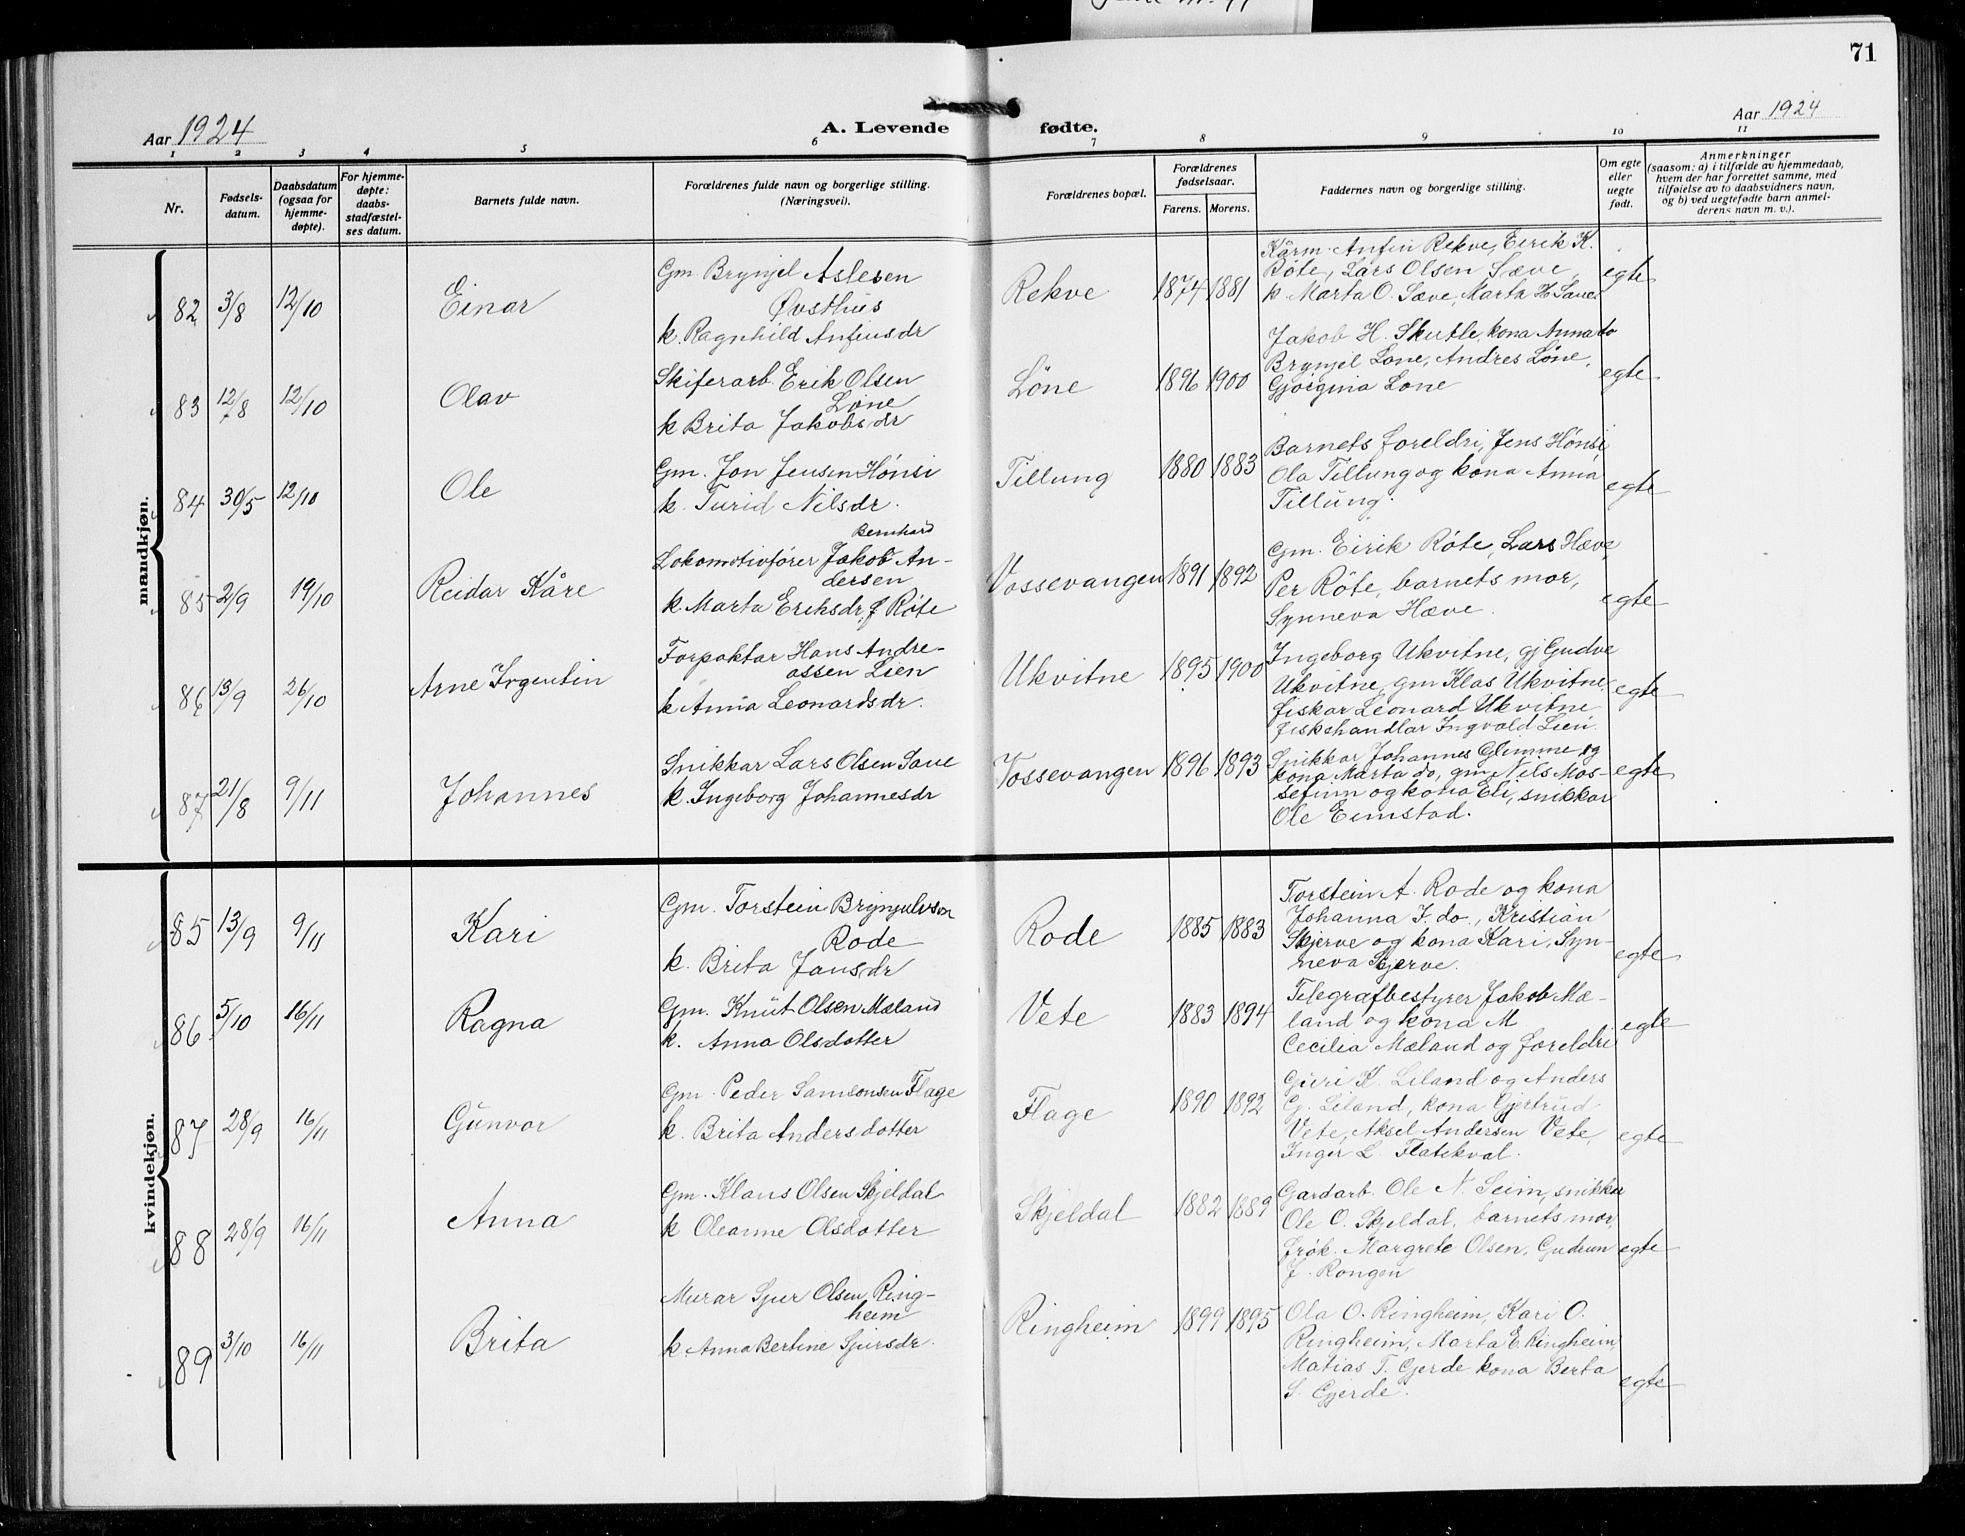 71
Aar 1924
A. Levende fødte.
Aar 1924
1 2 3 4 5 6 7 8 9 10 11
Nr.
Fødselsdatum.
Daabsdatum (ogsaa for hjemmedøpte).
For hjemmedøpte: daabsstadfæstelses datum.
Barnets fulde navn.
Forældrenes fulde navn og borgerlige stilling. (Næringsvei).
Forældrenes bopæl.
Forældrenes fødselsaar.
Farens. Morens.
Faddernes navn og borgerlige stilling.
Om egte eller uegte født.
Anmerkninger
(saasom: a) i tilfælde av hjemmedaab,
hvem der har forrettet samme, med
tilføielse av to daabsvidners navn,
og b) ved uegtefødte barn anmelderens navn m. v.).
mandkjøn.
82 3/8 12/10 Einar
Gm Brynjel Aslesen
Øvsthus
k. Ragnhild Anfinsdr
Rekve 1874 1881
Kårm. Anfin Rekve, Eirik K.
Røte, Lars Olsen Sæve,
k. Marta O. Sæve, Marta H Save
egte
83 12/8 12/10 Olav
Skiferarb. Erik Olsen
Løne
k Brita Jakobsdr
Løne 1896 1900
Jakob H. Skutle, kona Anna do
Brynjel Lone, Andres Løne,
Gjorgina Lone
egte
84 30/5 12/10 Ole
Gm. Jon Jensen Hønsi
k. Turid Nilsdr.
Tillung 1880 1883
Barnets foreldri, Jens Hønsi
Ola Tillung og kona Anna
Tillung.
egte
85 2/9 19/10 Reidar Kåre
Bernhard
Lokomotivfører Jakob An-
dersen
k. Marta Eriksdr, f Røte
Vossevangen 1891 1892
Gm. Eirik Røte, Lars Hæve,
Per Røte, barnets mor,
Synneva Hæve.
egte
86 13/9 26/10 Arne Irgentin
Forpaktar Hans Andre-
assen Lien
k Anna Leonardsdr.
Ukvitne 1895 1900
Ingeborg Ukvitne, gj Gudve
Ukvitne, gm Klas Ukvitne,
fiskar Leonard Ukvitne
fiskehandlar Ingvald Lien.
egte
87 21/8 9/11 Johannes
Snikkar Lars Olsen Save
k. Ingeborg Johannesdr
Vossevangen 1896 1893
Snikkar Johannes Glimme og
kona Marta do, gm Nils Mos-
sefinn og kona Eli, snikkar
Ole Eimstad.
egte
kvindekjøn.
85 13/9 9/11 Kari
Gm. Torstein Brynjulvson
Rode
k. Brita Jansdr
Rode 1885 1883
Torstein A. Rode og kona
Johanna I. do., Kristian
Skjerve og kona Kari, Syn-
neva Skjerve.
egte
86 5/10 16/11 Ragna
Gm. Knut Olsen Mæland
k. Anna Olsdotter
Vete 1883 1894
Telegrafbestyrer Jakob Mæ-
land og kona M
Cecilia Mæland og foreldri
egte
87 28/9 16/11 Gunvor
Gm. Peder Samsonsen Flage
k. Brita Andersdotter
Flage 1890 1892
Guri K. Liland og Anders
G. Liland, kona Gjertrud
Vete, Aksel Andersen Vete,
Inger L. Flatekval.
egte
88 28/9 16/11 Anna
Gm. Klaus Olsen Skjeldal
k Oleanne Olsdotter
Skjeldal 1882 1889
Gardarb. Ole N. Seim, snikkar
Ole O. Skjeldal, barnets mor,
frøk. Margrete Olsen, Gudrun
J. Rongen
egte
89 3/10 16/11 Brita
Murar Sjur Olsen Ring-
heim
k Anna Bertine Sjursdr.
Ringheim 1899 1895
Ola O. Ringheim, Kari O.
Ringheim, Marta E. Ringheim,
Matias T. Gjerde kona Berta
S. Gjerde.
egte